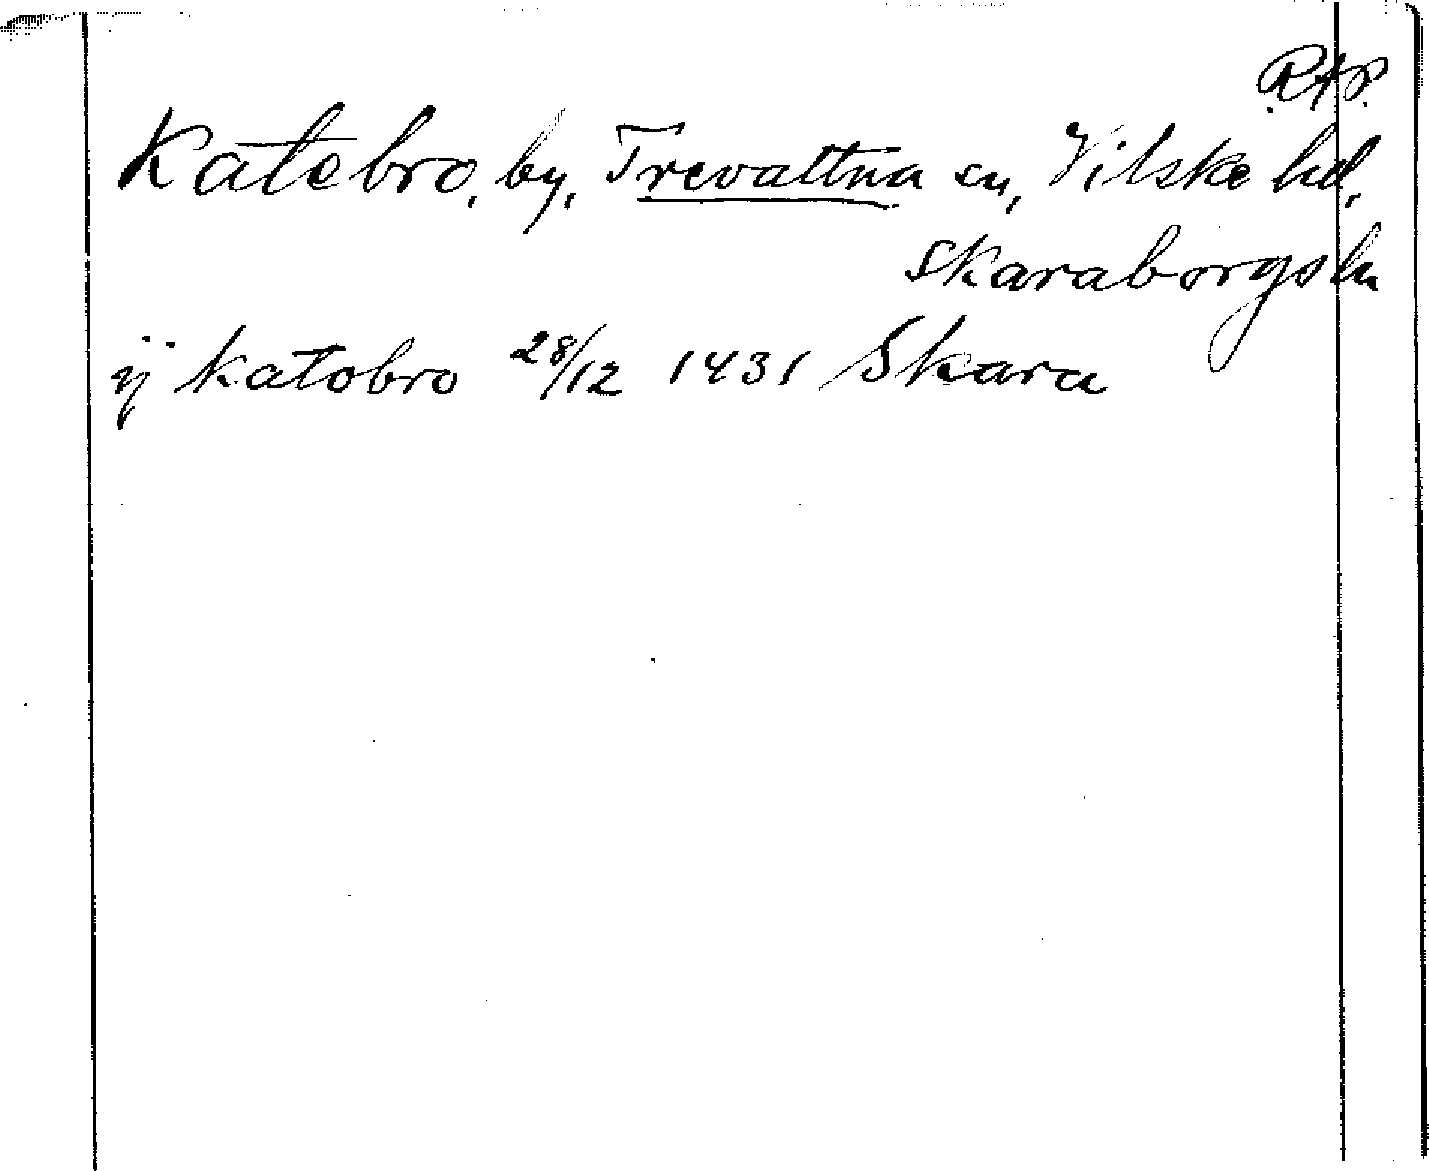 R.A.P.
Katebro, by, Trevattna sn, Vilske hd,
Skaraborgs ln
ÿ katobro 28/12 1431 Skara